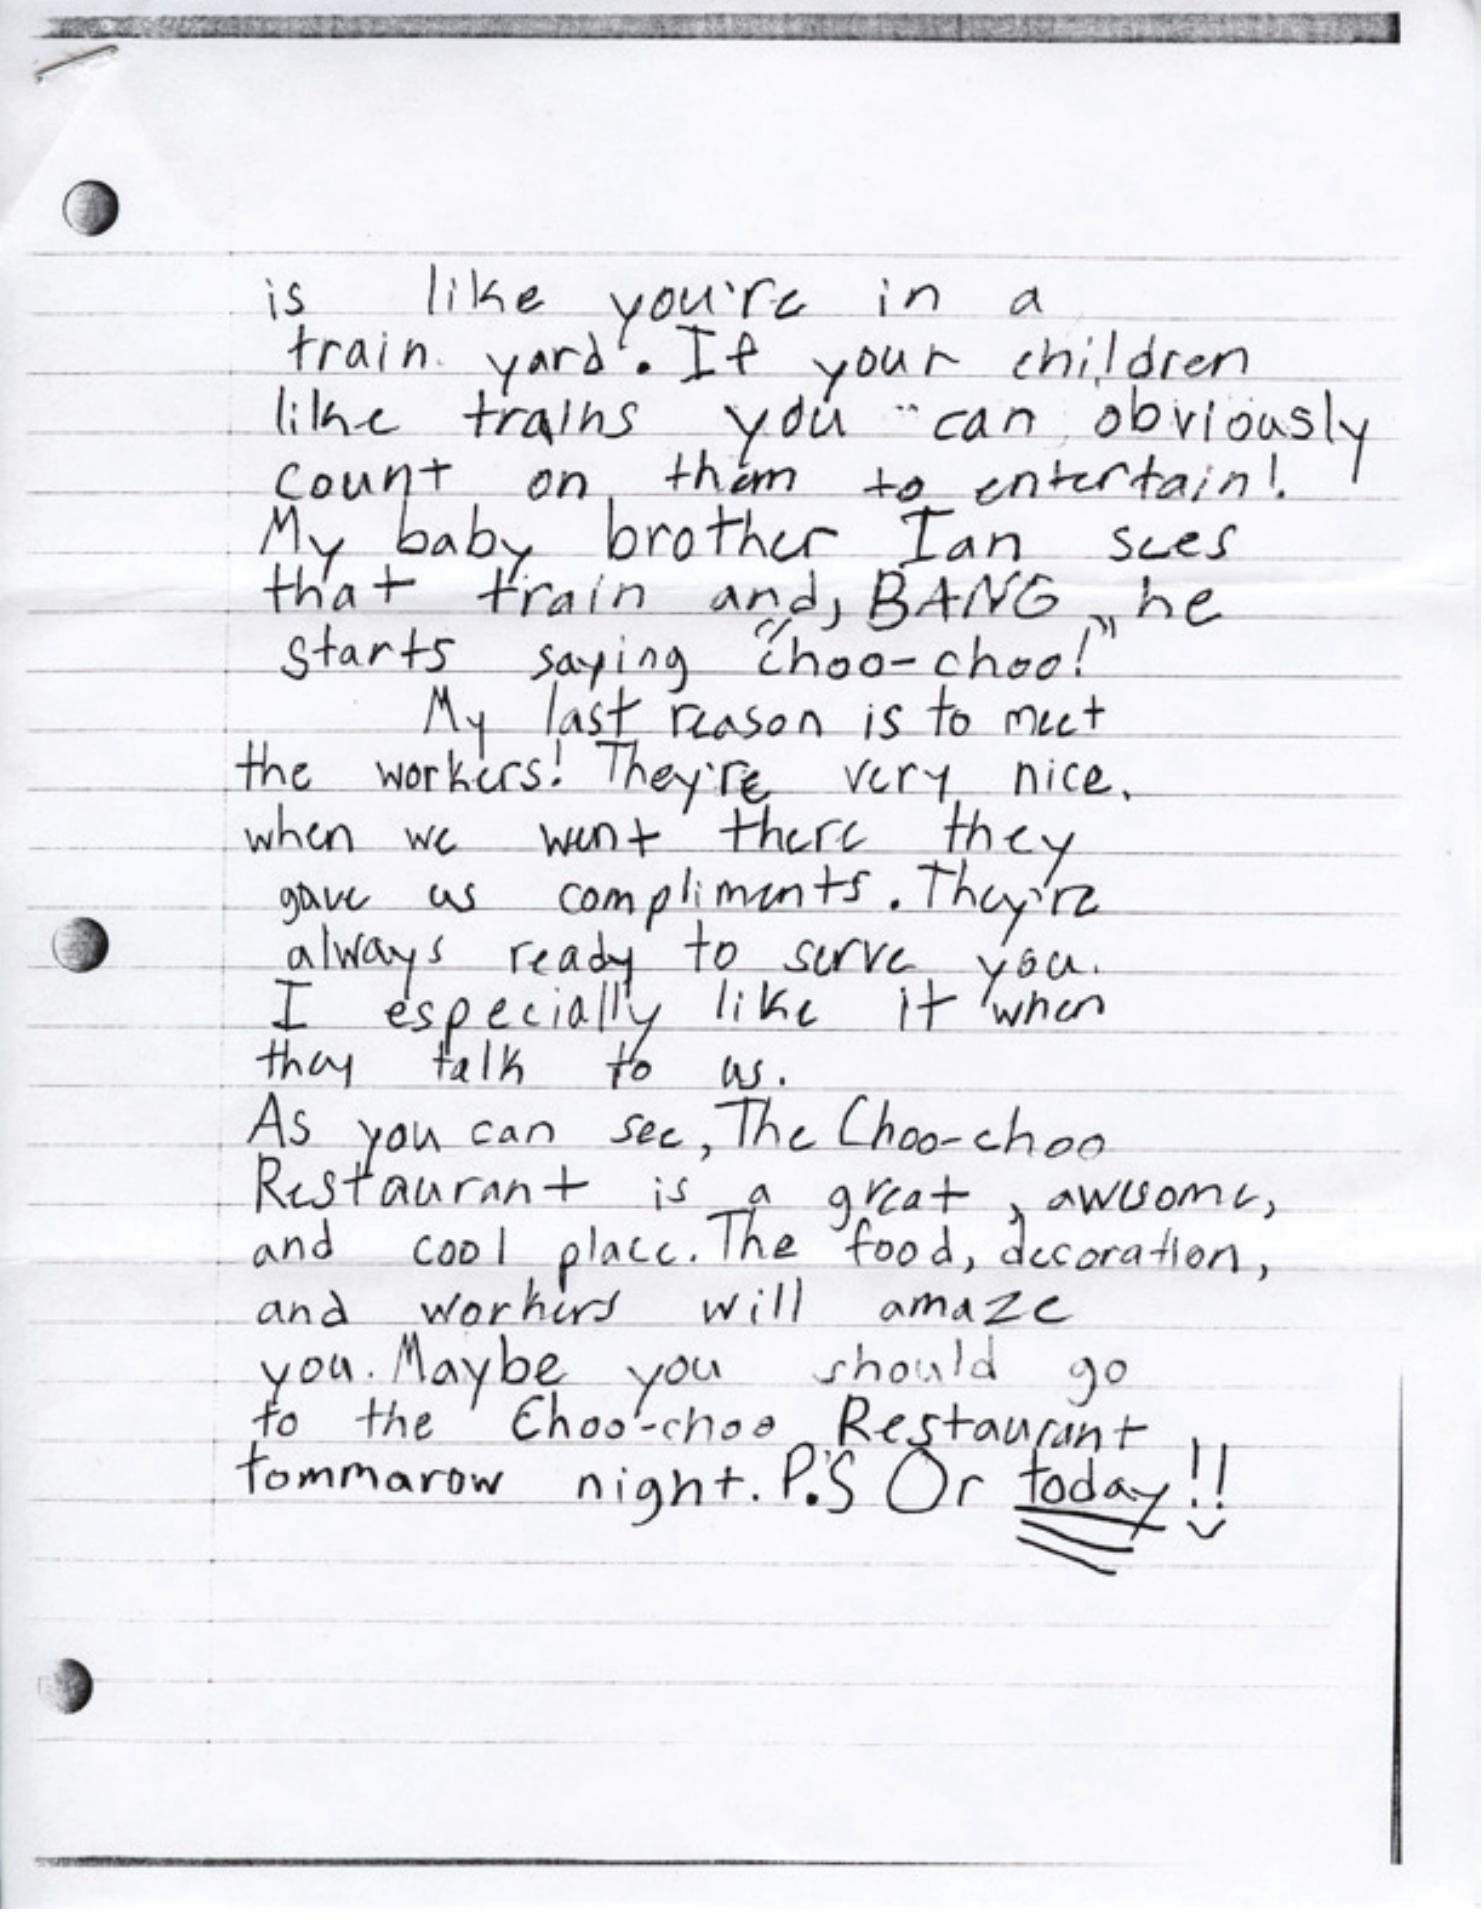 is like you're in a
train yard. If your children
like trains you can obviously
count on them to entertain!
My baby brother Ian sees
that train and, BANG, he
starts saying "choo-choo!"
My last reason is to meet
the workers! They're very nice.
when we went there they
gave us compliments. They're
always ready to serve you.
I especially like it when
they talk to us.
As you can see, The Choo-choo
Restaurant is a great, awesome,
and cool place. The food, decoration,
and workers will amaze
you. Maybe you should go
to the Choo-choo Restaurant
tommarow night. P.S Or today!!